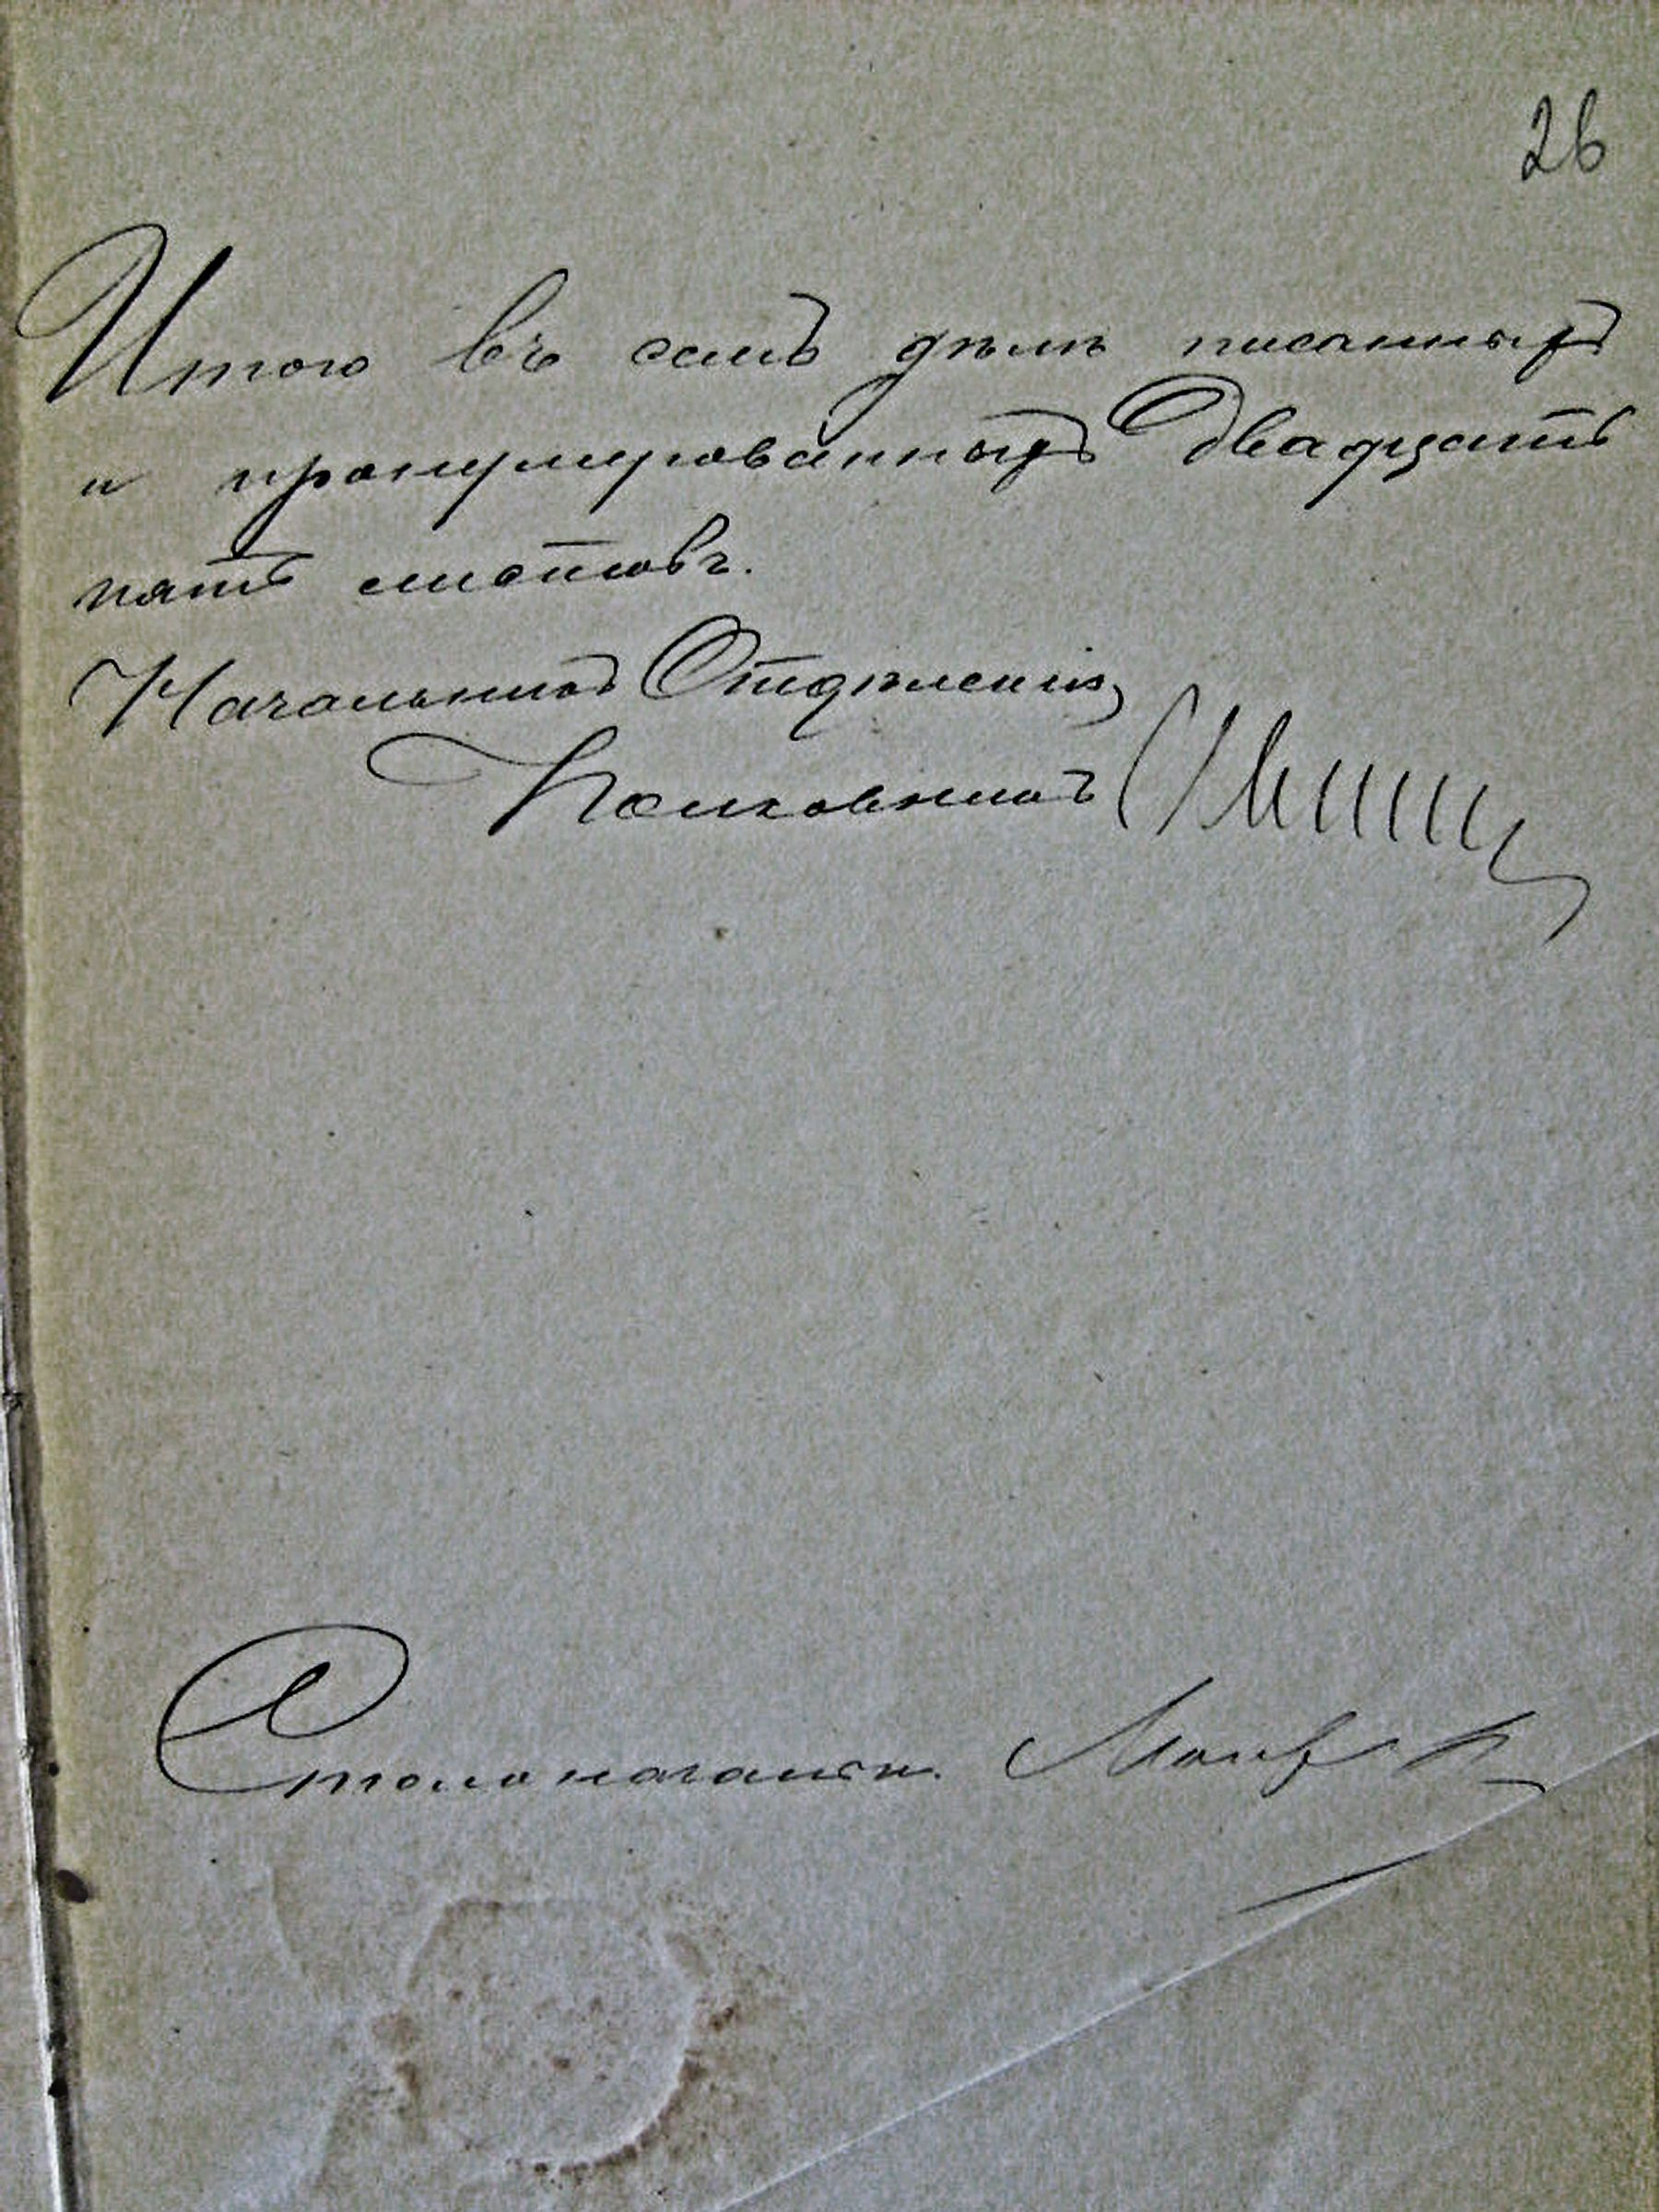 26
Итого въ семъ дѣлѣ писанныхъ
и пронумерованныхъ двадцать
пять листовъ.
Начальникъ Отдѣленія,
Полковникъ
Столоначальн.